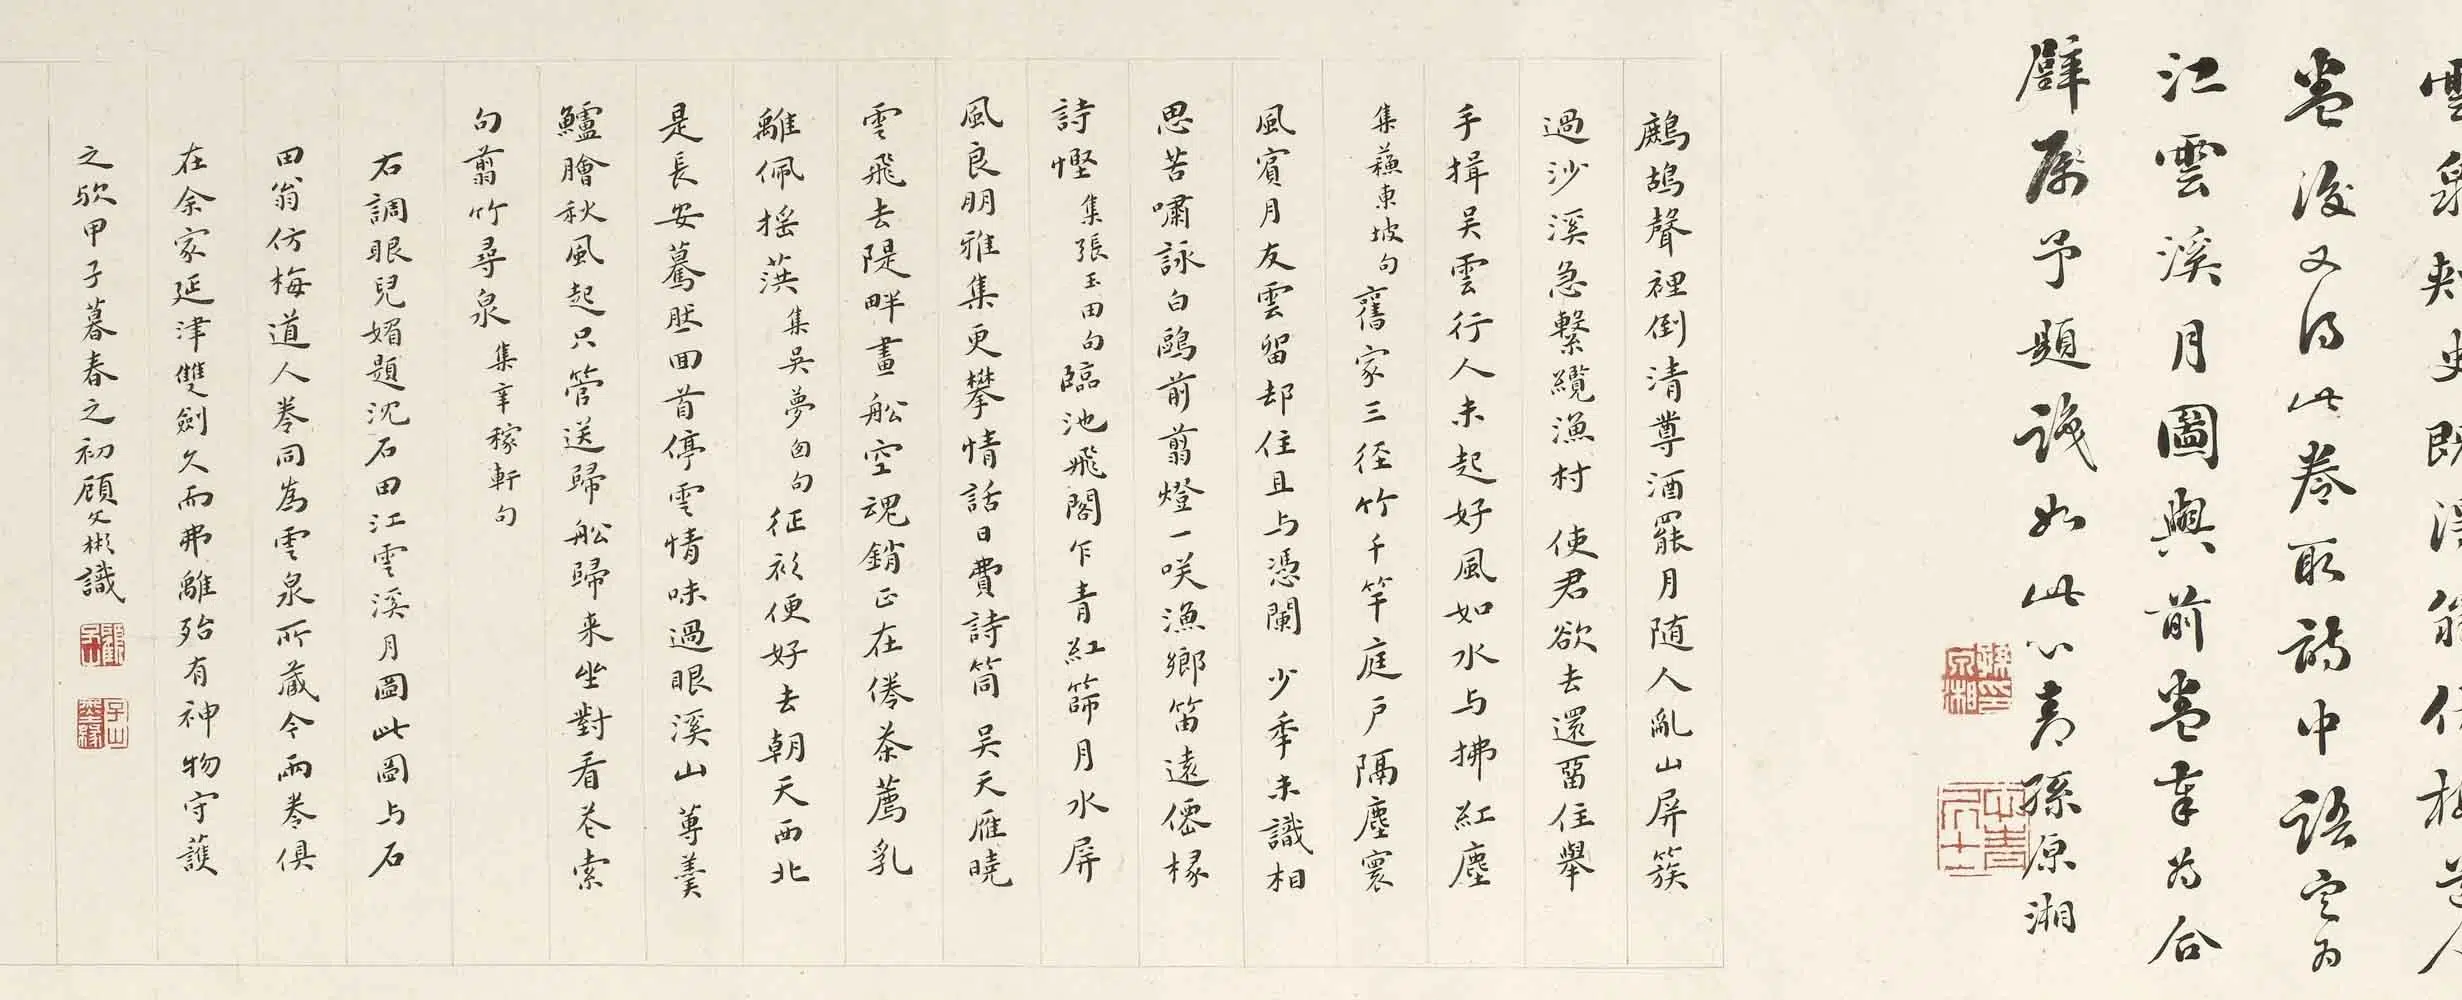 雲泉
卷後又得此卷取詩中語定為
江雲溪月圖與前卷幸為合
璧屬予題識如此心青孫原湘
鷓鴣聲裡倒清尊酒罷月随人亂山屏簇
過沙溪急繫纜漁村 使君欲去還畱住舉
手揖吴雲行人未起好風如水与拂紅塵
集蘇東坡句 舊家三径竹千竿庭戶隔塵寰
風賓月友雲留却住且与憑闌 少季未識相
思苦嘯詠白鷗前翦燈一咲漁鄉笛遠僊椽
詩慳 集張玉田句 臨池飛閣乍青紅篩月水屏
風良朋雅集更攀情話日費詩筒 吴天雁曉
雲飛去隄畔畫舩空魂銷正在倦茶薦乳
離佩揺葓 集吳夢囪句 征衫便好去朝天西北
是長安驀然回首停雲情味過眼溪山 蓴羹
鱸膾秋風起只管送歸舩歸来坐對看花索
句翦竹尋泉 集辛稼軒句
右調眼兒媚題沈石田江雲溪月圖此圖与石
田翁仿梅道人卷同為雲泉所藏今兩卷俱
在余家延津雙劍久而弗離殆有神物守護
之歟甲子暮春之初顧文彬識